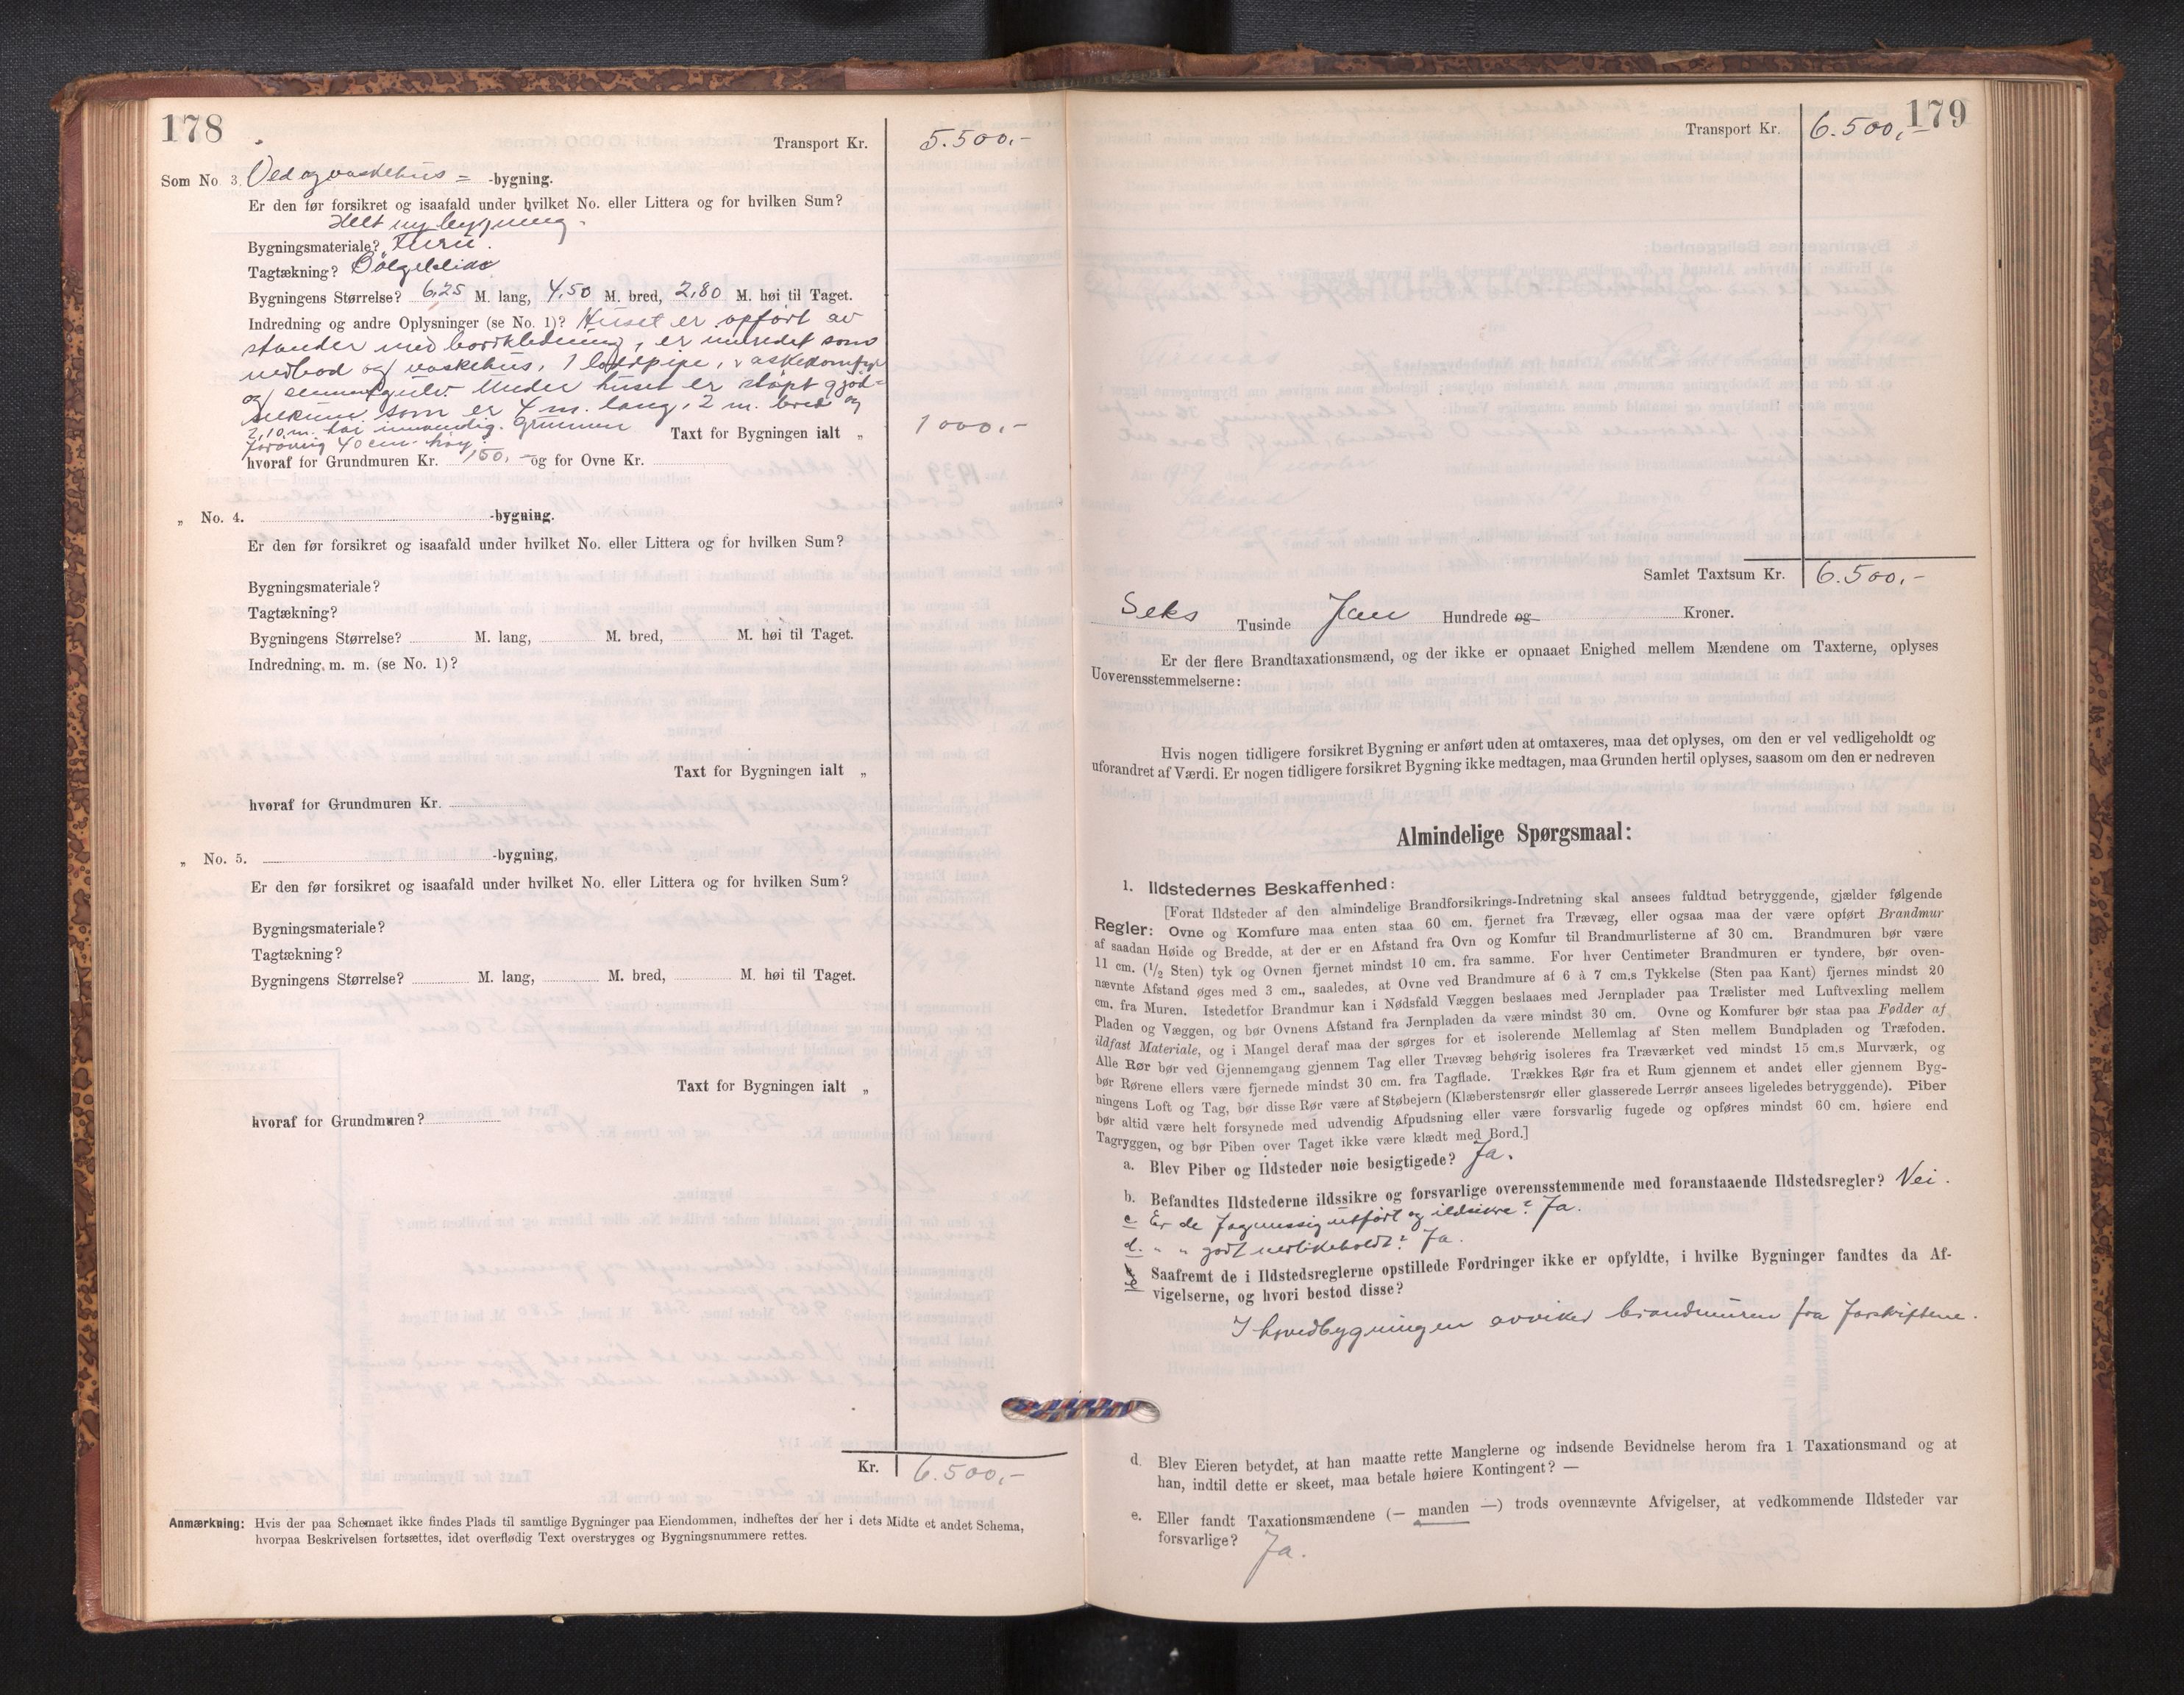 178
Transport Kr. 5.500,-
Som No. 3. Ved og vaskehus = -bygning.
Er den før forsikret og isaafald under hvilket No. eller Littera og for hvilken Sum?
Helt ny bygning.
Bygningsmateriale? Furu.
Tagtækning? Bölgeblikk
Bygningens Størrelse? 6,25 M. lang, 4,50 M. bred, 2,80 M. høi til Taget.
Indredning og andre Oplysninger (se No. 1)? Huset er opført av
stander med bordkledning, er innredet som
vedbod og vaskehus, 1 løepipe, vaskekomfyr
og sementgulv. Under huset er støpt gjød-
selkum som er 4 m. lang, 2 m. bred og
2,10 m. høi innvendig. Grunnmur
forøvrig 40 cm. høy. Taxt for Bygningen ialt „ 1000,-
hvoraf for Grundmuren Kr. 150,- og for Ovne Kr.
„ No. 4. -bygning.
Er den før forsikret og isaafald under hvilket No. eller Littera og for hvilken Sum?
Bygningsmateriale?
Tagtækning?
Bygningens Størrelse? M. lang, M. bred, M. høi til Taget.
Indredning, m. m. (se No. 1)?
Taxt for Bygningen ialt „
hvoraf for Grundmuren Kr.
„ No. 5. -bygning,
Er den før forsikret og isaafald under hvilket No. eller Littera og for hvilken Sum?
Bygningsmateriale?
Tagtækning?
Bygningens Størrelse? M. lang, M. bred, M. høi til Taget.
Taxt for Bygningen ialt „
hvoraf for Grundmuren?
Kr. 6.500,-
Anmærkning: Hvis der paa Schemaet ikke findes Plads til samtlige Bygninger paa Eiendommen, indheftes der her i dets Midte et andet Schema,
hvorpaa Beskrivelsen fortsættes, idet overflødig Text overstryges og Bygningsnummere rettes.
179
Transport Kr. 6.500,-
Samlet Taxtsum Kr. 6.500,-
Seks Tusinde Fem Hundrede og Kroner.
Er der flere Brandtaxationsmænd, og der ikke er opnaaet Enighed mellem Mændene om Taxterne, oplyses
Uoverensstemmelserne:
Hvis nogen tidligere forsikret Bygning er anført uden at omtaxeres, maa det oplyses, om den er vel vedligeholdt og
uforandret af Værdi. Er nogen tidligere forsikret Bygning ikke medtagen, maa Grunden hertil oplyses, saasom om den er nedreven
Almindelige Spørgsmaal:
1. Ildstedernes Beskaffenhed:
[Forat Ildsteder af den almindelige Brandforsikrings-Indretning skal ansees fuldtud betryggende, gjælder følgende
Regler: Ovne og Komfure maa enten staa 60 cm. fjernet fra Trævæg, eller ogsaa maa der være opført Brandmur
af saadan Høide og Bredde, at der er en Afstand fra Ovn og Komfur til Brandmurlisterne af 30 cm. Brandmuren bør være
11 cm. (1/2 Sten) tyk og Ovnen fjernet mindst 10 cm. fra samme. For hver Centimeter Brandmuren er tyndere, bør oven-
nævnte Afstand øges med 3 cm., saaledes, at Ovne ved Brandmure af 6 à 7 cm.s Tykkelse (Sten paa Kant) fjernes mindst 20
cm. fra Muren. Istedetfor Brandmur kan i Nødsfald Væggen beslaaes med Jernplader paa Trælister med Luftvexling mellem
Pladen og Væggen, og bør Ovnens Afstand fra Jernpladen da være mindst 30 cm. Ovne og Komfurer bør staa paa Fødder af
ildfast Materiale, og i Mangel deraf maa der sørges for et isolerende Mellemlag af Sten mellem Bundpladen og Træfoden.
Alle Rør bør ved Gjennemgang gjennem Tag eller Trævæg behørig isoleres fra Træværket ved mindst 15 cm.s Murværk, og
bør Rørene ellers være fjernede mindst 30 cm. fra Tagflade. Trækkes Rør fra et Rum gjennem et andet eller gjennem Byg-
ningens Loft og Tag, bør disse Rør være af Støbejern (Klæberstensrør eller glasserede Lerrør ansees ligeledes betryggende). Piber
bør altid være helt forsynede med udvendig Afpudsning eller være forsvarlig fugede og opføres mindst 60 cm. høiere end
Tagryggen, og bør Piben over Taget ikke være klædt med Bord.]
a. Blev Piber og Ildsteder nøie besigtigede? Ja.
b. Befandtes Ildstederne ildssikre og forsvarlige overensstemmende med foranstaaende Ildstedsregler? Nei.
c Er de fagmessig utført og ildsikre? Ja.
d. " " godt vedlikeholdt? Ja.
e Saafremt de i Ildstedsreglerne opstillede Fordringer ikke er opfyldte, i hvilke Bygninger fandtes da Af-
vigelserne, og hvori bestod disse?
I hovedbygningen avviker brandmuren fra forskriftene.
d. Blev Eieren betydet, at han maatte rette Manglerne og indsende Bevidnelse herom fra 1 Taxationsmand og at
han, indtil dette er skeet, maa betale høiere Kontingent? —
e. Eller fandt Taxationsmændene (— manden —) trods ovennævnte Afvigelser, at vedkommende Ildsteder var
forsvarlige? Ja.